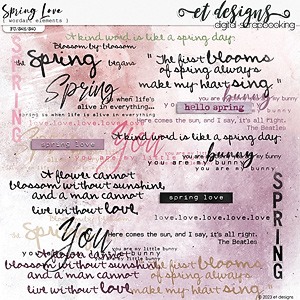 Spring Love
{ wordart elements }
et designs
digital scrapbooking
A kind word is like a spring day.
Blossom by blossom
the Spring begans
"The first blooms
of spring always
make my heart sing"
SPRING
Spring
when life's
alive in everything...
spring is when life is alive in everything
you are my bunny
hello spring
Here comes the sun, and I say, it's all right.
The Beatles
love.love.love.love.love
you
A kind word is like a spring day.
you are my little bunny
bunny
A flower cannot
blossom without sunshine,
and a man cannot
live without love
spring love
love.love.love.love.love.love
SPRING
You
Here comes the sun, and I say, it's all right.
The Beatles
you are my little bunny
A flower cannot
blossom without sunshine,
and a man cannot
live without love
"The first blooms
of spring always
make my heart sing"
© 2023 et designs